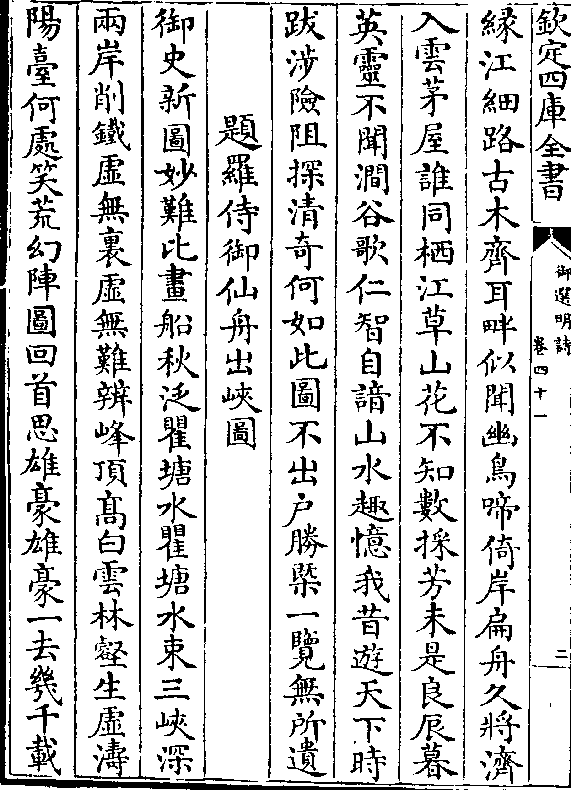 欽定四庫全書
御選明詩
卷四十一
二
緣江細路古木齊耳畔似聞幽鳥啼倚岸扁舟久將濟
入雲茅屋誰同栖江草山花不知數採芳未是良辰暮
英靈不聞澗谷歌仁智自諳山水趣憶我昔遊天下時
跋涉險阻探清奇何如此圖不出户勝槩一覽無所遺
題羅侍御仙舟出峽圖
御史新圖妙難比畫船秋泛瞿塘水瞿塘水束三峽深
兩岸削鐵虛無裏虛無難辨峰頂高白雲林壑生虛濤
陽臺何處笑荒幻陣圖回首思雄豪雄豪一去幾千載